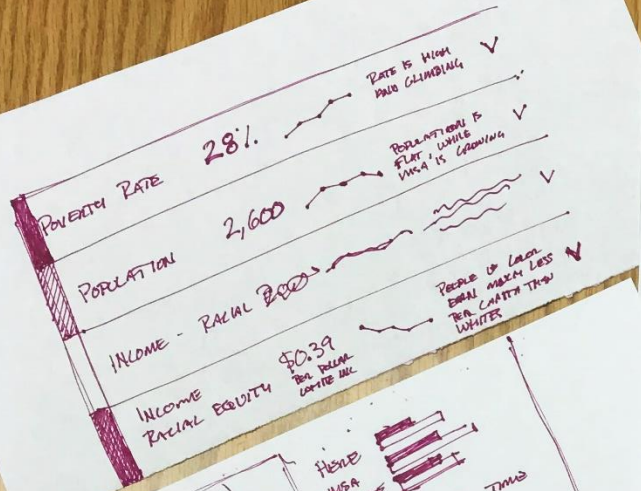 POVERTY RATE
28%
RATE IS HIGH
AND CLIMBING
POPULATION
2,600
POPULATION IS
FLAT, WHILE
MSA IS GROWING
INCOME - RACIAL
INCOME
RACIAL EQUITY
$0.39
PER DOLLAR
WHITE INC
PEOPLE OF COLOR
EARN MUCH LESS
PER CAPITA THAN
WHITES
HERE
MSA
TIME